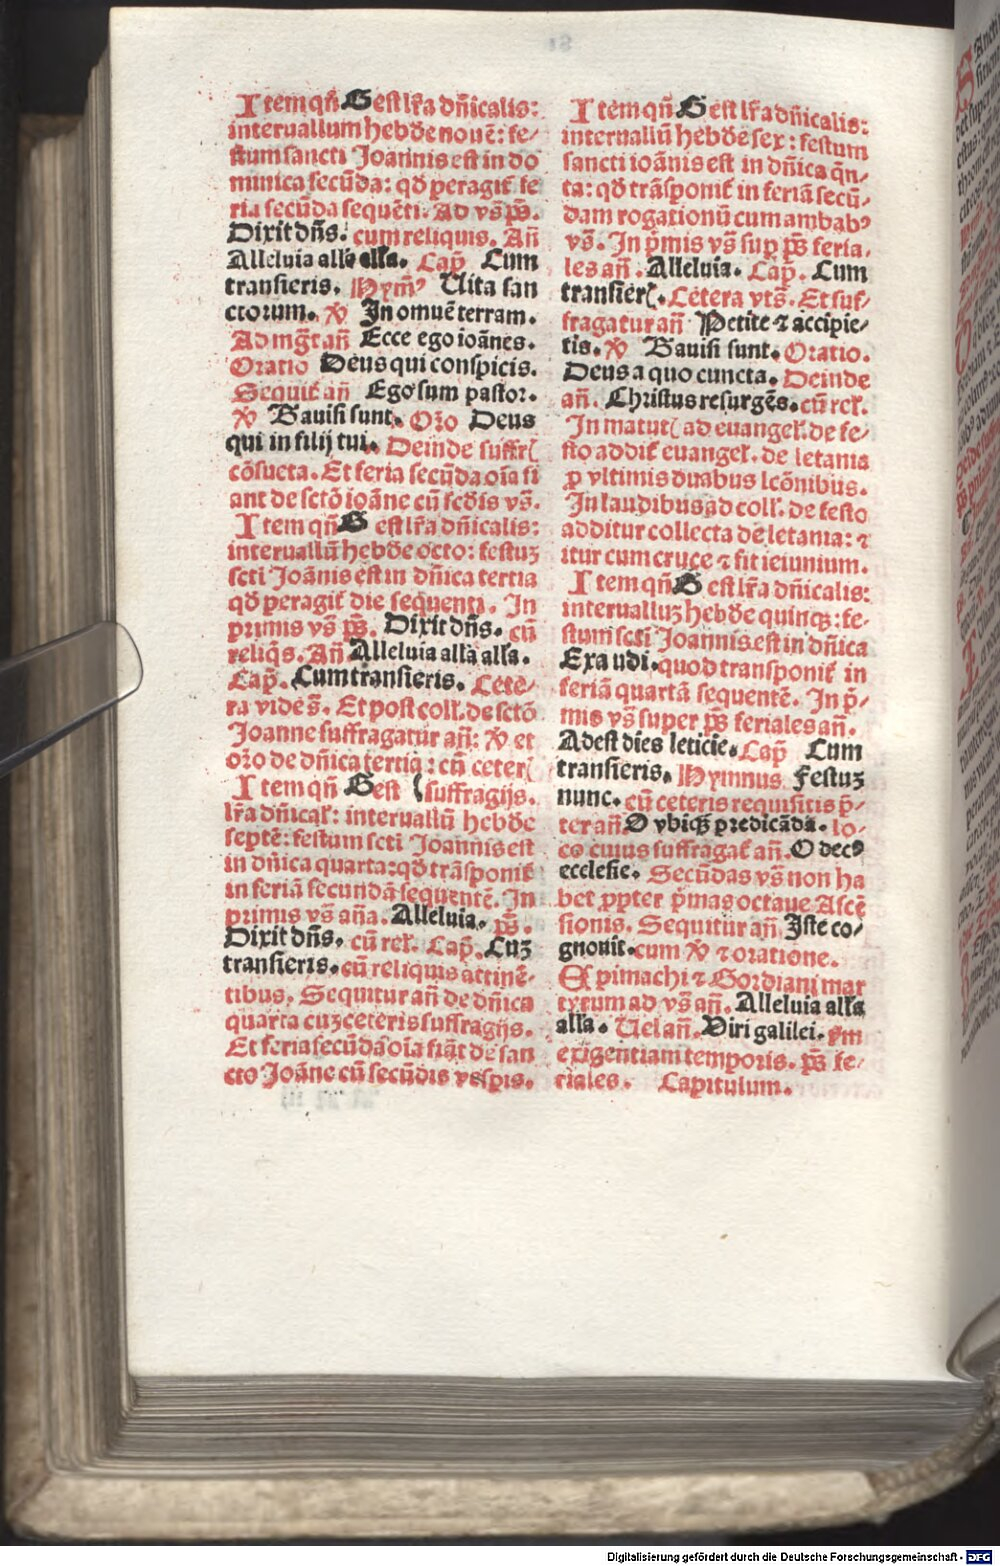 Item qñ G est lr̃a dñicalis:
interuallum hebđe nouē: fe⸗
stum sancti Joannis est in do
minica secūda: qđ peragit̃ fe
ria secūda sequēti. Ad vs̃ ps̃.
Dixit dñs. cum reliquis. Añ
Alleluia alla alla. Cap̃. Cum
transieris. Hymꝰ Uita san
ctorum. ℣ In omnē terram.
Ad mg̃t añ Ecce ego ioānes.
Oratio Deus qui conspicis.
Sequit̃ añ Ego sum pastor.
℣ Gauisi sunt. Oꝛ̃o Deus
qui in filij tui. Deinde suffr̃
cōsueta. Et feria secūda oīa fi
ant de sctō ioāne cū scđis vs̃.
Item qñ G est lr̃a dñicalis:
interuallū hebđe octo: festuꝫ
scti Joānis est in dñica tertia
qđ peragit̃ die sequenti. In
primis vs̃ ps̃. Dixit dñs. cū
reliq̄s. Añ Alleluia alla alla.
Cap̃. Cum transieris. Cete⸗
ra vide s̃. Et post coll̃. de sctō
Joanne suffragatur añ: ℣ et
oꝛ̃o de dñica tertia: cū ceter̃
Item qñ G est (suffragijs.
lr̃a dñical̃: interuallū hebđe
septē: festum scti Joannis est
in dñica quarta: qđ trāsponit̃
in feriā secundā sequentē. In
primis vs̃ aña. Alleluia. ps̃.
Dixit dñs. cū rel̃. Cap̃. Cuꝫ
transieris. cū reliquis attinē⸗
tibus. Sequitur añ de dñica
quarta cuꝫ ceteris suffragijs.
Et feria secūda oīa fiāt de san
cto Joāne cū secūdis vesp̱is.
Item qñ G est lr̃a dñicalis:
interuallū hebđe sex: festum
sancti ioānis est in dñica q̄n⸗
ta: qđ trāsponit̃ in feriā secū⸗
dam rogationū cum ambabꝰ
vs̃. In p̄mis vs̃ sup̱ ps̃ feria⸗
les añ. Alleluia. Cap̃. Cum
transier̃. Cetera vts̃. Et suf⸗
fragatur añ Petite ⁊ accipie⸗
tis. ℣ Gauisi sunt. Oratio.
Deus a quo cuncta. Deinde
añ. Christus resurgēs. cū rel̃.
In matut̃ ad euangel̃. de fe⸗
sto addit̃ euangel̃. de letania
p̱ vltimis duabus lcōnibus.
In laudibus ad coll̃. de festo
additur collecta de letania: ⁊
itur cum cruce ⁊ fit ieiunium.
Item qñ G est lr̃a dñicalis:
interualluꝫ hebđe quinqꝫ: fe⸗
stum scti Joannis est in dñica
Exaudi. quod transponit̃ in
feriā quartā sequentē. In p̄⸗
mis vs̃ super ps̃ feriales añ.
Adest dies leticie. Cap̃ Cum
transieris. Hymnus Festuꝫ
nunc. cū ceteris requisitis p̄⸗
ter añ O vbiqꝫ predicāda. lo⸗
co cuius suffragat̃ añ. O decꝰ
ecclesie. Secūdas vs̃ non ha
bet ꝓpter p̄mas octaue Ascē
sionis. Sequitur añ Iste co⸗
gnouit. cum ℣ ⁊ oratione.
Epimachi ⁊ Gordiani mar
tyrum ad vs̃ añ. Alleluia alla
alla. Uel añ. Viri galilei. fm
exigentiam temporis. ps̃ fe⸗
riales. Capitulum.
Digitalisierung gefördert durch die Deutsche Forschungsgemeinschaft - DFG